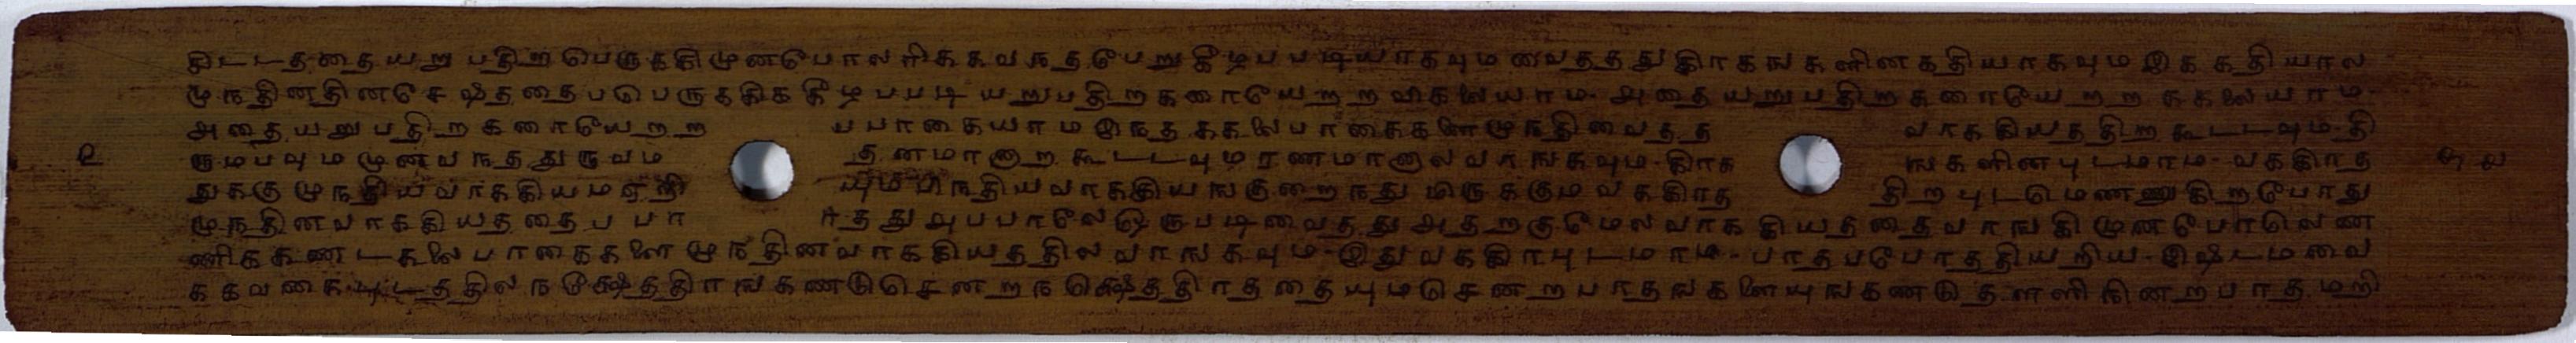 திட்டத்தையறுபதிறபெருக்கிமுன்போலரிக்கவந்தபேறுகீழப்படியாகவும்வைத்ததுகிரகங்களின்கதியாகவும்இக்கதியால
முந்தின்தினசேஷத்தைப்பெருக்கிக்கீழப்படியறுபதிற்கரையேற்றவிகலையாம்-அதையறுபதிற்கரையேற்றக்கலையாம்-
அதையறுபதிற்கரையேற்ற ப்பாகையாம்இந்தக்கலைபாகைகளைமுந்திவைத்த வாக்கியத்திற்கூட்டவும்-தி
ரும்பவும்முன்வந்ததுருவம் தனமானாற்கூட்டவும்ரணமானால்வாங்கவும்-கிரக ங்களின்புடமாம்-வக்கிரத
துக்குமுந்தியவாக்கியம்ஏறி யும்பிந்தியவாக்கியங்குறைந்துமிருக்கும்வக்கிரத திற்புடமெண்ணுகிறபோது
முந்தின்வாக்கியத்தைப்பா ர்த்துஅப்பாலேஒருபடிவைத்துஅதற்குமேல்வாக்கியத்தைவாங்கிமுன்போலெண
ணிக்கண்டகலைபாகைகளைமுந்தின்வாக்கியத்தில்வாங்கவும்-இதுவக்கிரபுடமாம்-பாதப்போத்தியறிய-இஷ்டமவை
க்கவகைபுடத்தில்நக்ஷத்திரங்கண்டுசென்றநக்ஷத்திரத்தையும்சென்றபாதங்களையுங்கண்டுதள்ளிநின்றபாதமறி